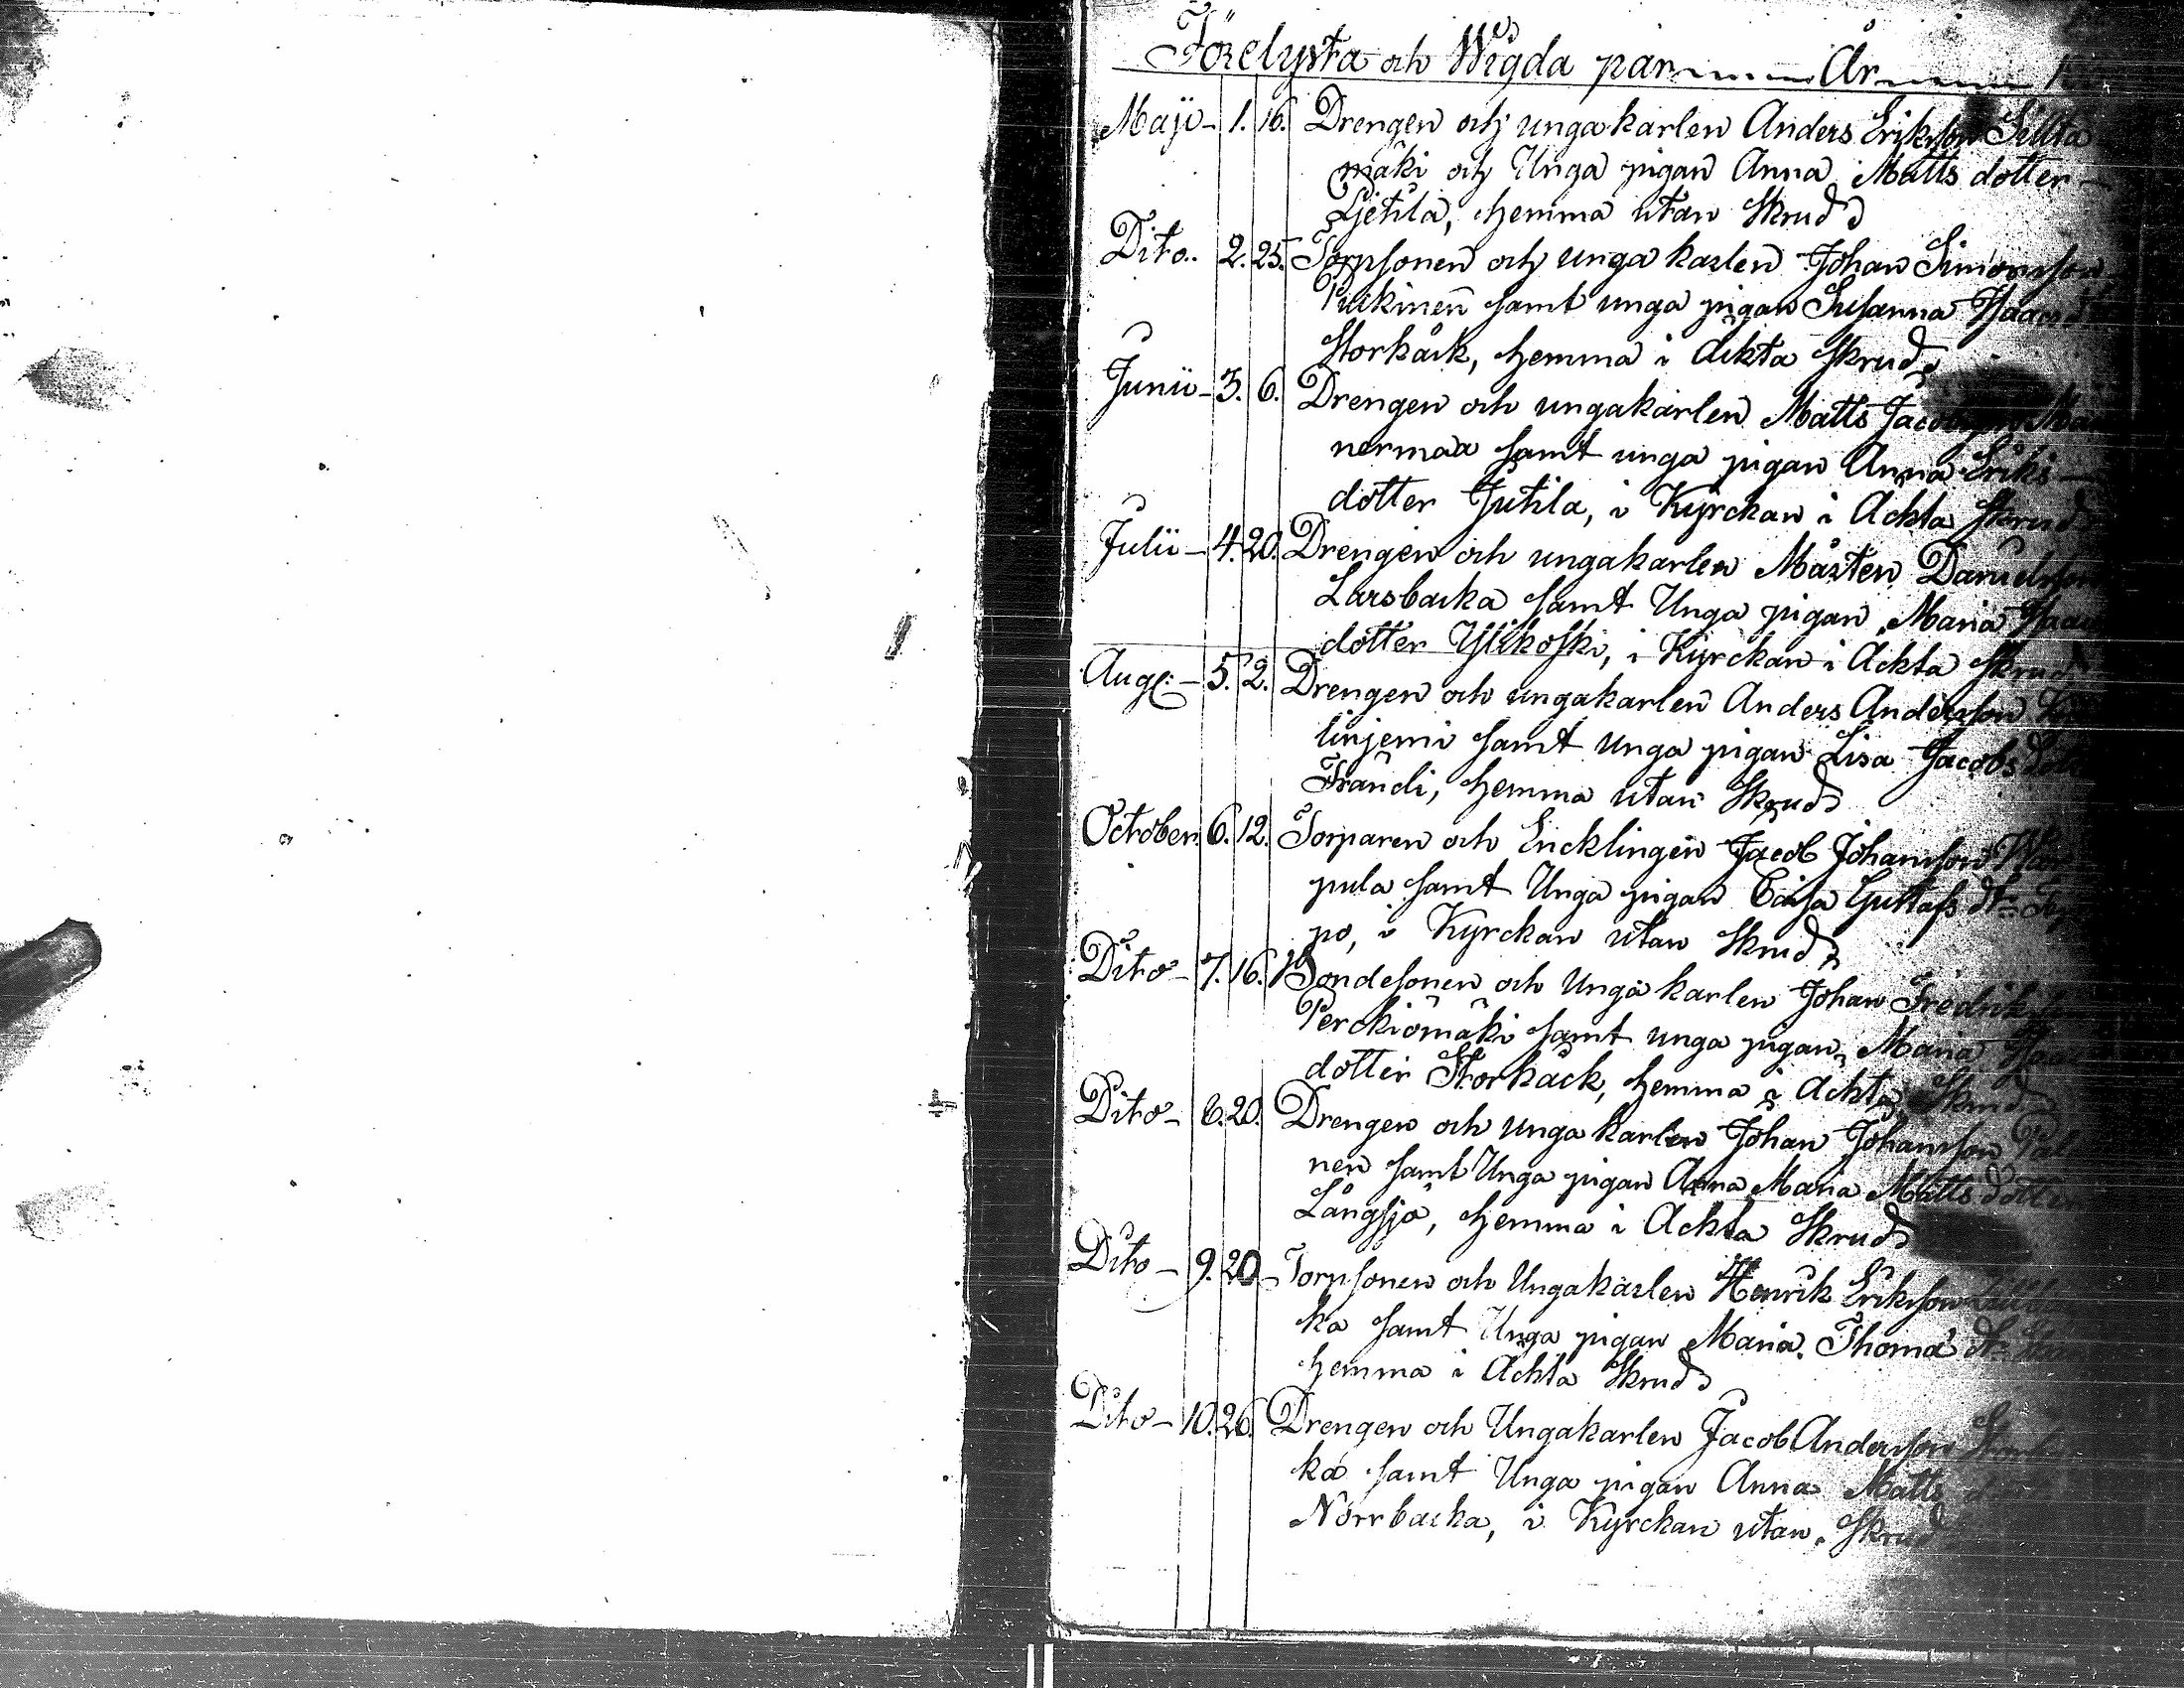 Förelysta och Wigda par År
Maji 1. 16. Drengen och unga karlen Anders Erikson
mäki och Unga pigan Anna Matts dotter
Ljetila, hemma utan Skrud
Dito 2. 25. Torpsonen och unga karlen Johan Simonsson
samt unga pigan Susanna
Storkåck, hemma i Äckta Skrud
Junii 3. 6. Drengen och ungakarlen Matts
nermaa samt unga pigan Anna Eriks
dotter Jutila, i Kyrckan i Äckta Skrud
Julii 4. 20. Drengen och ungakarlen Mårten Danielsson
Larsbacka samt Unga pigan Maria
dotter Ylikoski, i Kyrckan i Äckta Skrud
Aug: 5. 2. Drengen och ungakarlen Anders Andersson
linjemi samt unga pigan Lisa Jacobs
Frändi, hemma utan Skrud
October 6. 12. Torparen och Encklingen Jacob Johansson
pula samt Unga pigan Caisa Gustafs
po, i Kyrckan utan Skrud
Dito 7. 16. Bondesonen och Unga karlen Johan
Perckiömäki samt unga pigan Maria
dotter Storkåck, hemma i Äckta Skrud
Dito 8. 20. Drengen och unga karlen Johan Johansson
nen samt Unga pigan Anna Maria Matts dotter
Långsjö, hemma i Äckta Skrud
Dito 9. 20 Torpsonen och Ungakarlen Henrik Eriksson
ka samt Unga pigan Maria Thoma
hemma i Äckta Skrud
Dito 10. 26. Drengen och Ungakarlen Jacob Andersson
ka samt Unga pigan Anna Matts
Norrbacka, i Kyrckan utan Skrud